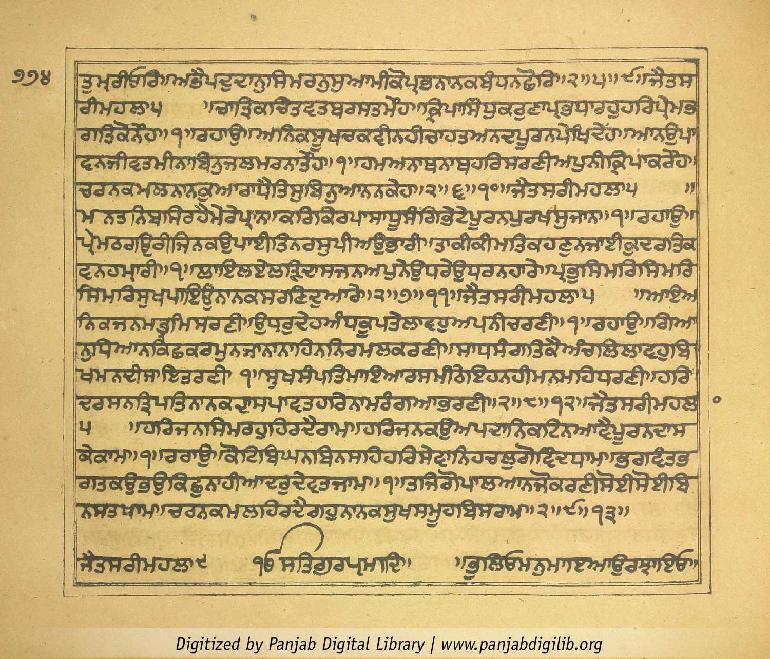 ੭੭੪
ਤੁਮਰੀਓਰਿ॥ਅਭੈਪਦੁਦਾਨੁਸਿਮਰਨੁਸੁਆਮੀਕੋਪ੍ਰਭਨਾਨਕਬੰਧਨਛੋਰਿ॥੨॥੫॥੯॥ਜੈਤਸ
ਰੀਮਹਲਾ੫ ॥ਚਾਤ੍ਰਿਕਚਿਤਵਤਬਰਸਤਮੇਂਹ॥ਕ੍ਰਿਪਾਸਿੰਧੁਕਰੁਣਾਪ੍ਰਭਧਾਰਹੁਹਰਿਪ੍ਰੇਮਭ
ਗਤਿਕੋਨੇਂਹ॥੧॥ਰਹਾਉ॥ਅਨਿਕਸੂਖਚਕਵੀਨਹੀਚਾਹਤਅਨਦਪੂਰਨਪੇਖਿਦੇਂਹ॥ਆਨਉਪਾ
ਵਨਜੀਵਤਮੀਨਾਬਿਨੁਜਲਮਰਨਾਤੇਂਹ॥੧॥ਹਮਅਨਾਥਨਾਥਹਰਿਸਰਣੀਅਪੁਨੀਕ੍ਰਿਪਾਕਰੇਂਹ॥
ਚਰਨਕਮਲਨਾਨਕੁਆਰਾਧੈਤਿਸੁਬਿਨੁਆਨਨਕੇਹ॥੨॥੬॥੧੦॥ਜੈਤਸਰੀਮਹਲਾ੫ ॥
ਮਨਤਨਿਬਸਿਰਹੇਮੇਰੇਪ੍ਰਾਨ॥ਕਰਿਕਿਰਪਾਸਾਧੂਸੰਗਿਭੇਟੇਪੂਰਨਪੁਰਖਸੁਜਾਨ॥੧॥ਰਹਾਉ॥
ਪ੍ਰੇਮਠਗਉਰੀਜਿਨਕਉਪਾਈਤਿਨਰਸੁਪੀਅਉਭਾਰੀ॥ਤਾਕੀਕੀਮਤਿਕਹਣੁਨਜਾਈਕੁਦਰਤਿਕ
ਵਨਹਮਾਰੀ॥੧॥ਲਾਇਲਏਲੜਿਦਾਸਜਨਅਪੁਨੇਉਧਰੇਉਧਰਨਹਾਰੇ॥ਪ੍ਰਭੁਸਿਮਰਿਸਿਮਰਿ
ਸਿਮਰਿਸੁਖਪਾਇਉਨਾਨਕਸਰਣਿਦੁਆਰੇ॥੨॥੭॥੧੧॥ਜੈਤਸਰੀਮਹਲਾ੫ ॥ਆਏਅ
ਨਿਕਜਨਮਭ੍ਰਮਿਸਰਣੀ॥ਉਧਰੁਦੇਹਅੰਧਕੂਪਤੇਲਾਵਹੁਅਪਨੀਚਰਣੀ॥੧॥ਰਹਾਉ॥ਗਿਆ
ਨੁਧਿਆਨੁਕਿਛੁਕਰਮੁਨਜਾਨਾਨਾਹਿਨਨਿਰਮਲਕਰਣੀ॥ਸਾਧਸੰਗਤਿਕੈਅੰਚਲਿਲਾਵਹੁਬਿ
ਖਮਨਦੀਜਾਇਤਰਣੀ ੧॥ਸੁਖਸੰਪਤਿਮਾਇਆਰਸਮੀਠੇਇਹਨਹੀਮਨਮਹਿਧਰਣੀ॥ਹਰਿ
ਦਰਸਨਤ੍ਰਿਪਤਿਨਾਨਕਦਾਸਪਾਵਤਹਰਿਨਾਮਰੰਗਆਭਰਣੀ॥੨॥੮॥੧੨॥ਜੈਤਸਰੀਮਹਲਾ
੫ ॥ਹਰਿਜਨਸਿਮਰਹੁਹਿਰਦੈਰਾਮ॥ਹਰਿਜਨਕਉਅਪਦਾਨਿਕਟਿਨਆਵੈਪੂਰਨਦਾਸ
ਕੇਕਾਮ॥੧॥ਰਹਾਉ॥ਕੋਟਿਬਿਘਨਬਿਨਸਹਿਹਰਿਸੇਵਾਨਿਹਚਲੁਗੋਵਿੰਦਧਾਮ॥ਭਗਵੰਤਭ
ਗਤਕਉਭਉਕਿਛੁਨਾਹੀਆਦਰੁਦੇਵਤਜਾਮ॥੧॥ਤਜਿਗੋਪਾਲਆਨਜੋਕਰਣੀਸੋਈਸੋਈਬਿ
ਨਸਤਖਾਮ॥ਚਰਨਕਮਲਹਿਰਦੈਗਹੁਨਾਨਕਸੁਖਸਮੂਹਬਿਸਰਾਮ॥੨॥੯॥੧੩॥
ਜੈਤਸਰੀਮਹਲਾ੯ ੴਸਤਿਗੁਰਪ੍ਰਸਾਦਿ॥ ॥ਭੂਲਿਓਮਨੁਮਾਇਆਉਰਝਾਇਓ॥
Digitized by Panjab Digital Library | www.panjabdigilib.org